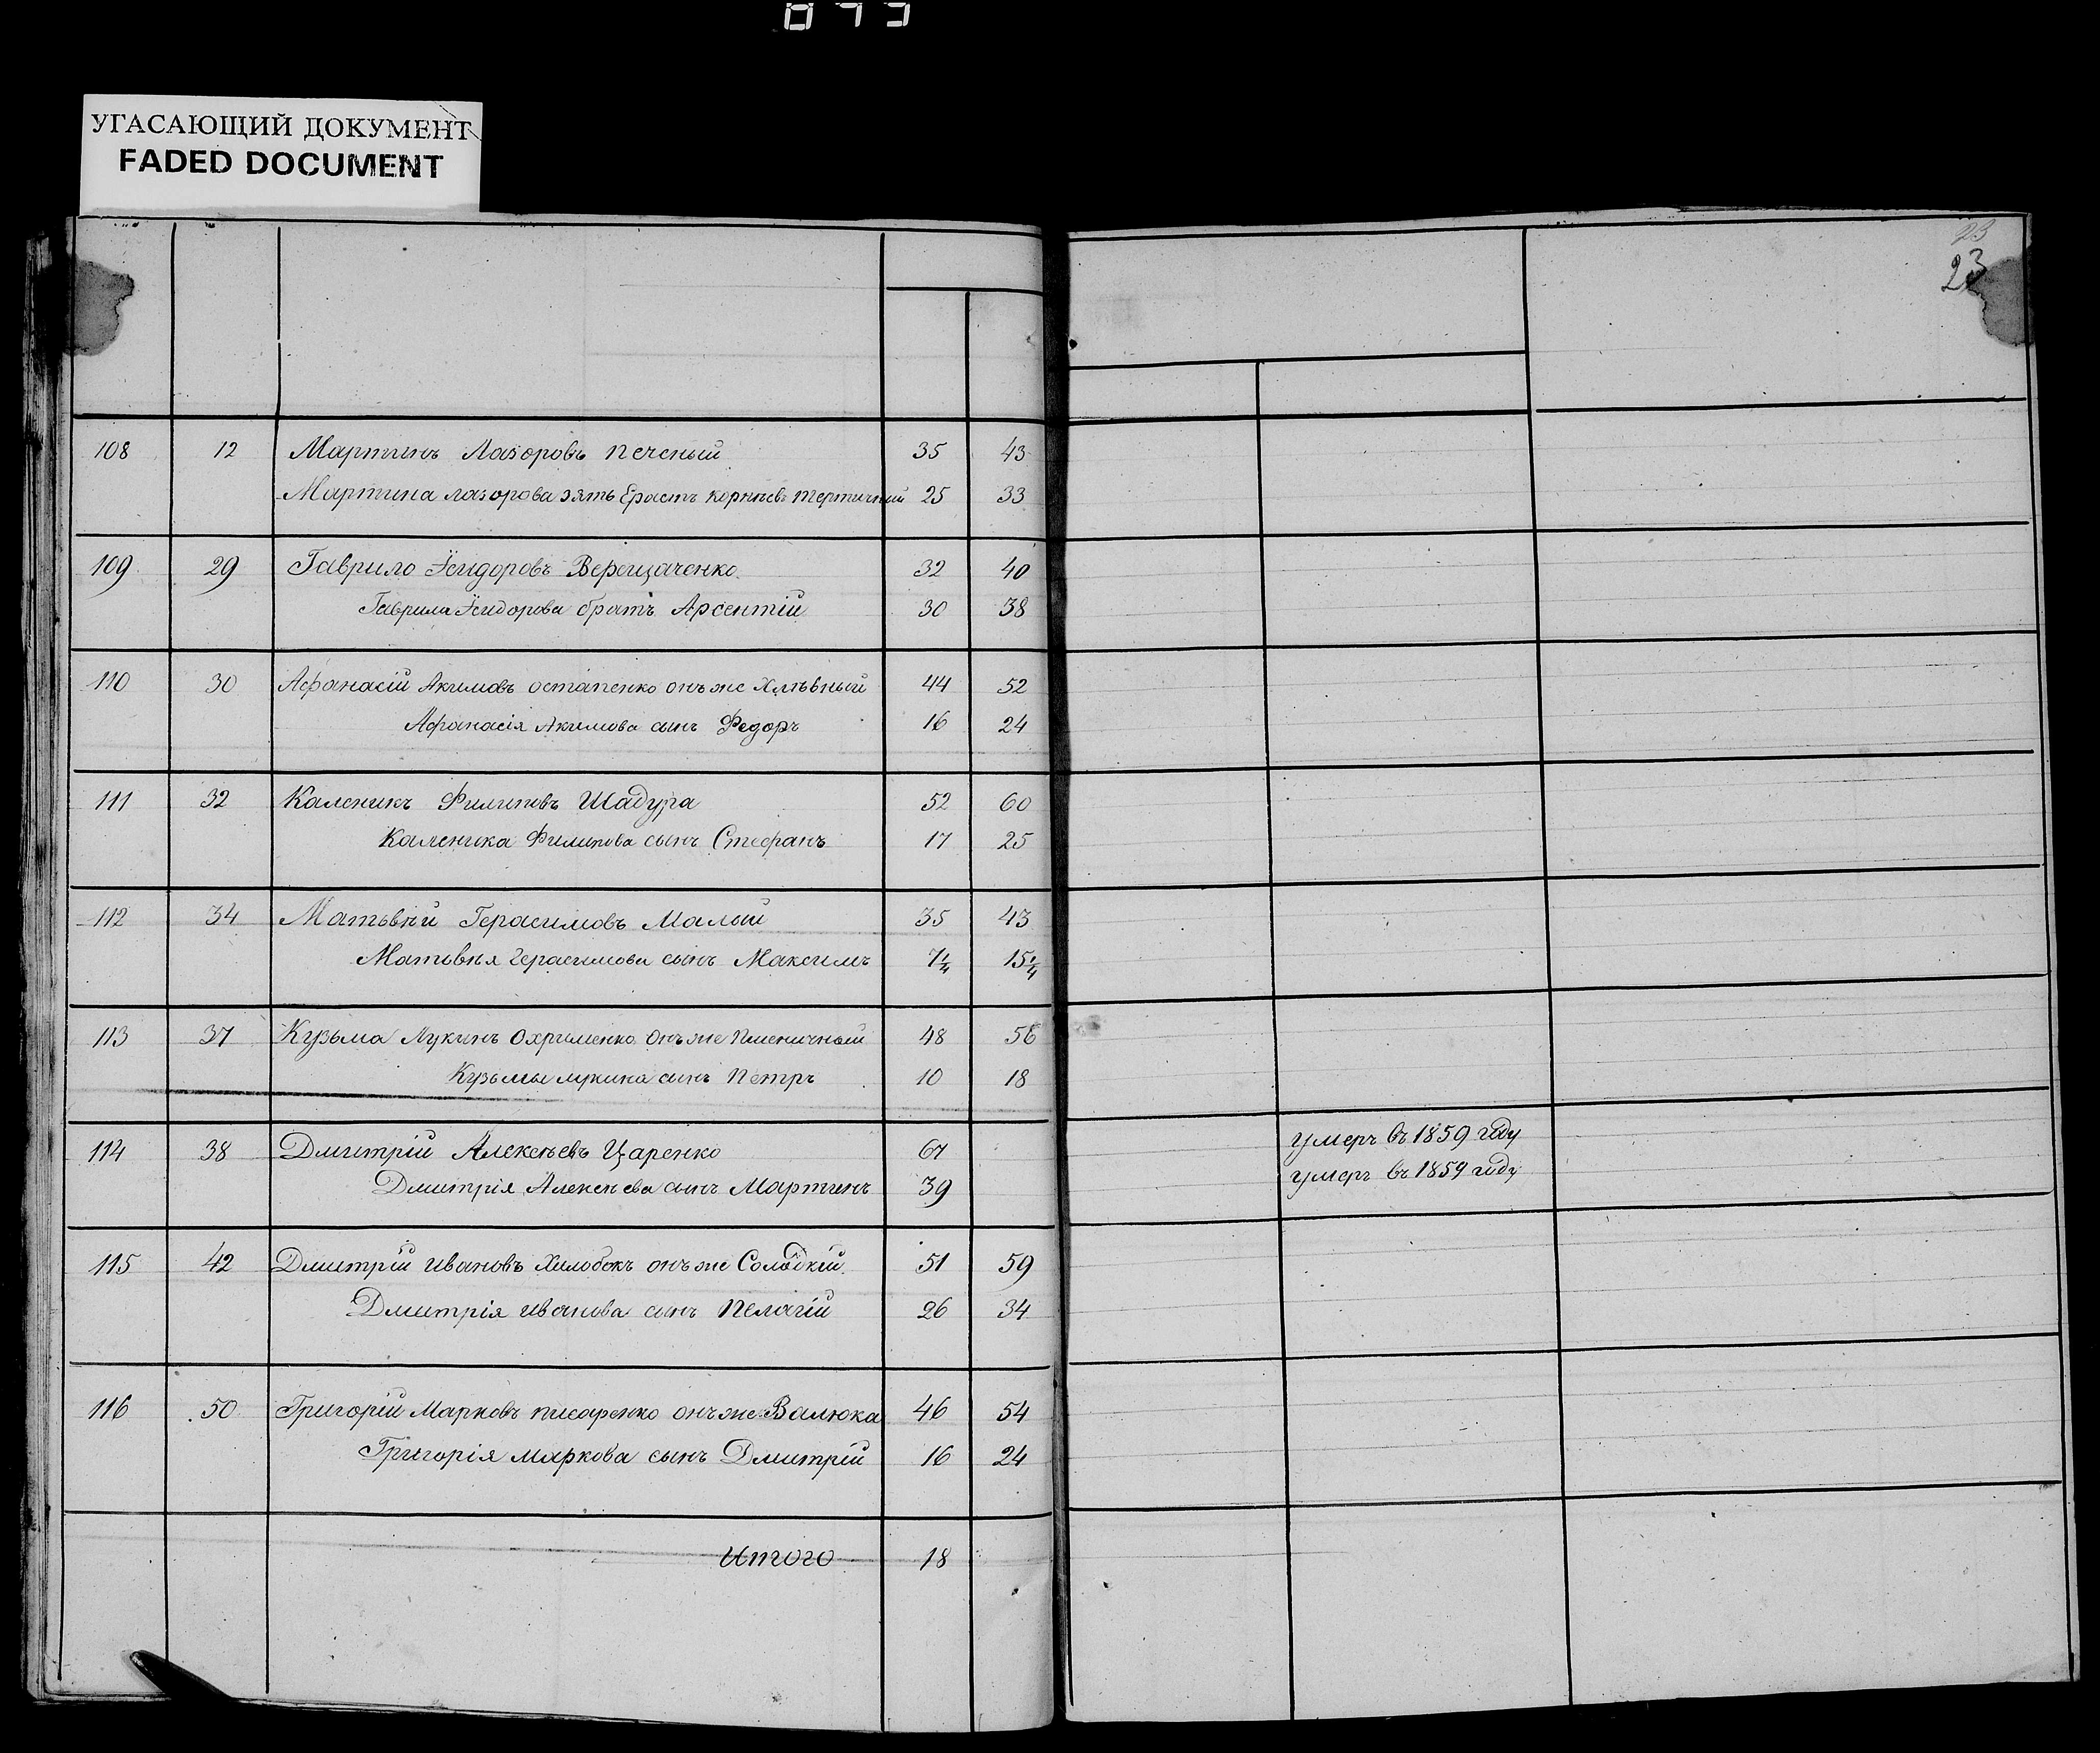 УГАСАЮЩИЙ ДОКУМЕНТ
FADED DOCUMENT
23
23
108 12 Мартинъ Лазоровъ Печеный 35 43
Мартина лазорова зять Ерастъ корнѣевъ тертичный 25 33
109 29 Гаврило Ѳеидоровъ Верещаченко 32 40
Гаврила Ѳеидорова братъ Арсентій 30 38
110 30 Афанасій Акимовъ остапенко онъ же Хлѣвный 44 52
Афанасія Акимова сынъ Федоръ 16 24
111 32 Каленикъ Филиповъ Шадура 52 60
Каленика Филипова сынъ Стефанъ 17 25
112 34 Матьвѣй Герасимовъ Малый 35 43
Матьвѣя Герасимова сынъ Максимъ 7¼ 15¼
113 37 Кузьма Лукинъ Охрименко онъ же Пшеничный 48 56
Кузьмы лукина сынъ Петръ 10 18
114 38 Дмитрій Алексѣевъ Царенко 67 умеръ въ 1859 году
Дмитрія Алексѣева сынъ Мартинъ 39 умеръ въ 1859 году
115 42 Дмитрій Ивановъ Хилобокъ онъ же Солодкій 51 59
Дмитрія Иванова сынъ Пелагій 26 34
116 50 Григорій Марковъ писаренко онъ же Валюка 46 54
Григорія Маркова сынъ Дмитрій 16 24
Итого 18